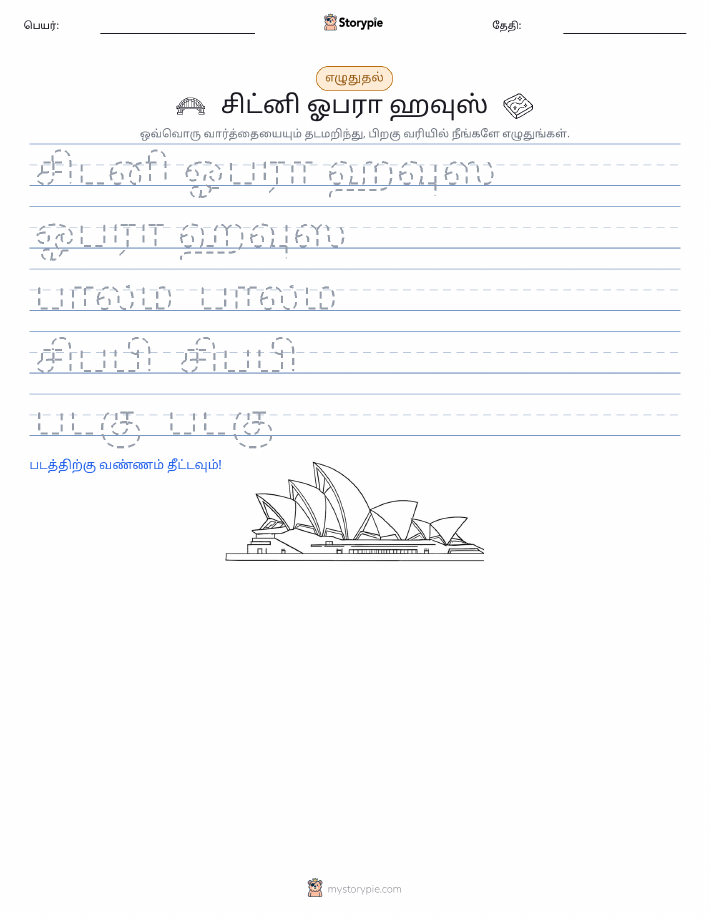 பெயர்: Storypie தேதி:
எழுதுதல்
சிட்னி ஓபரா ஹவுஸ்
ஒவ்வொரு வார்த்தையையும் தடமறிந்து, பிறகு வரியில் நீங்களே எழுதுங்கள்.
சிடனி ஓபரா ஹவுஸ
ஓபரா ஹவுஸ
பாலம் பாலம்
சிபபி சிபபி
படகு படகு
படத்திற்கு வண்ணம் தீட்டவும்!
mystorypie.com